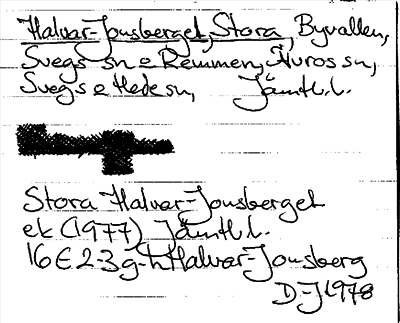 Halvar-Jonsberget, Stora, Byvallen,
Svegs sn o Remmen, Äuros sn,
Svegs o Hede sn, Jämtl.l.
Stora Halvar-Jonsberget
ek (1977) Jämtl.l.
16E 2-3 g-h Halvar-Jonsberg
D-J 1978